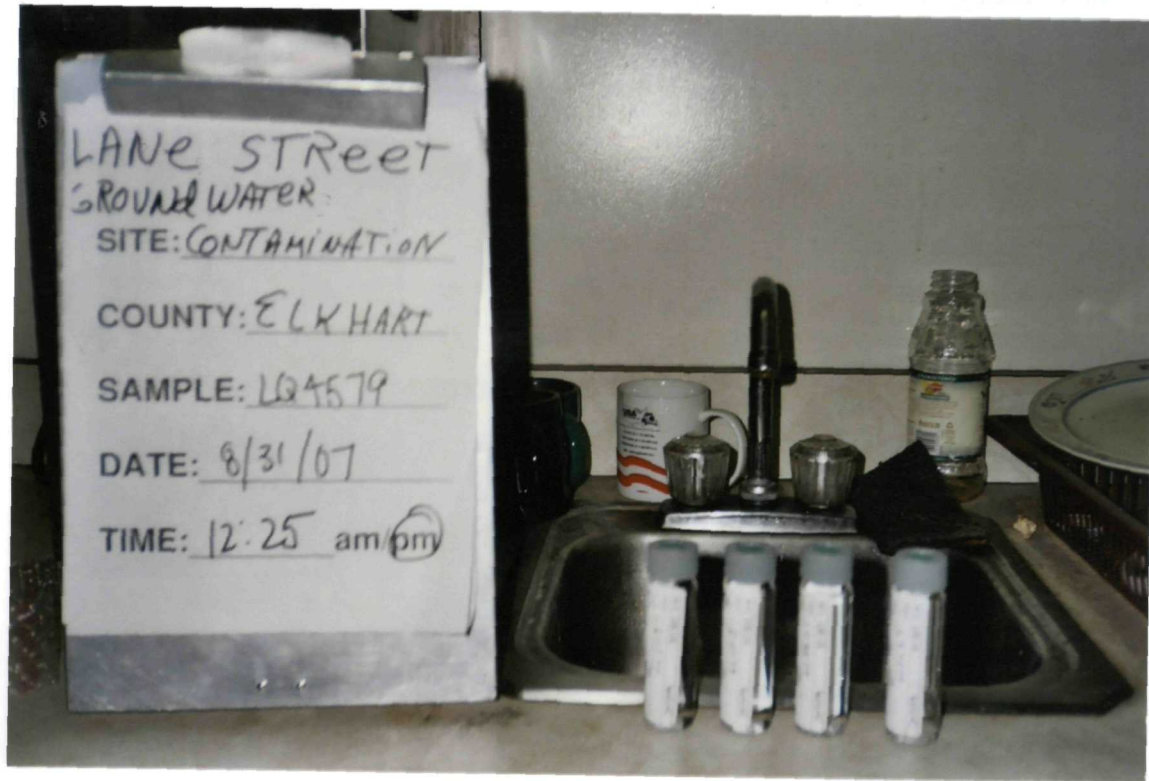 LANe STReeT
GROUNd WATER
SITE: CONTAMINATiON
COUNTY: ELKHART
SAMPLE: LQ4579
DATE: 8/31/07
TIME: 12:25 am/pm